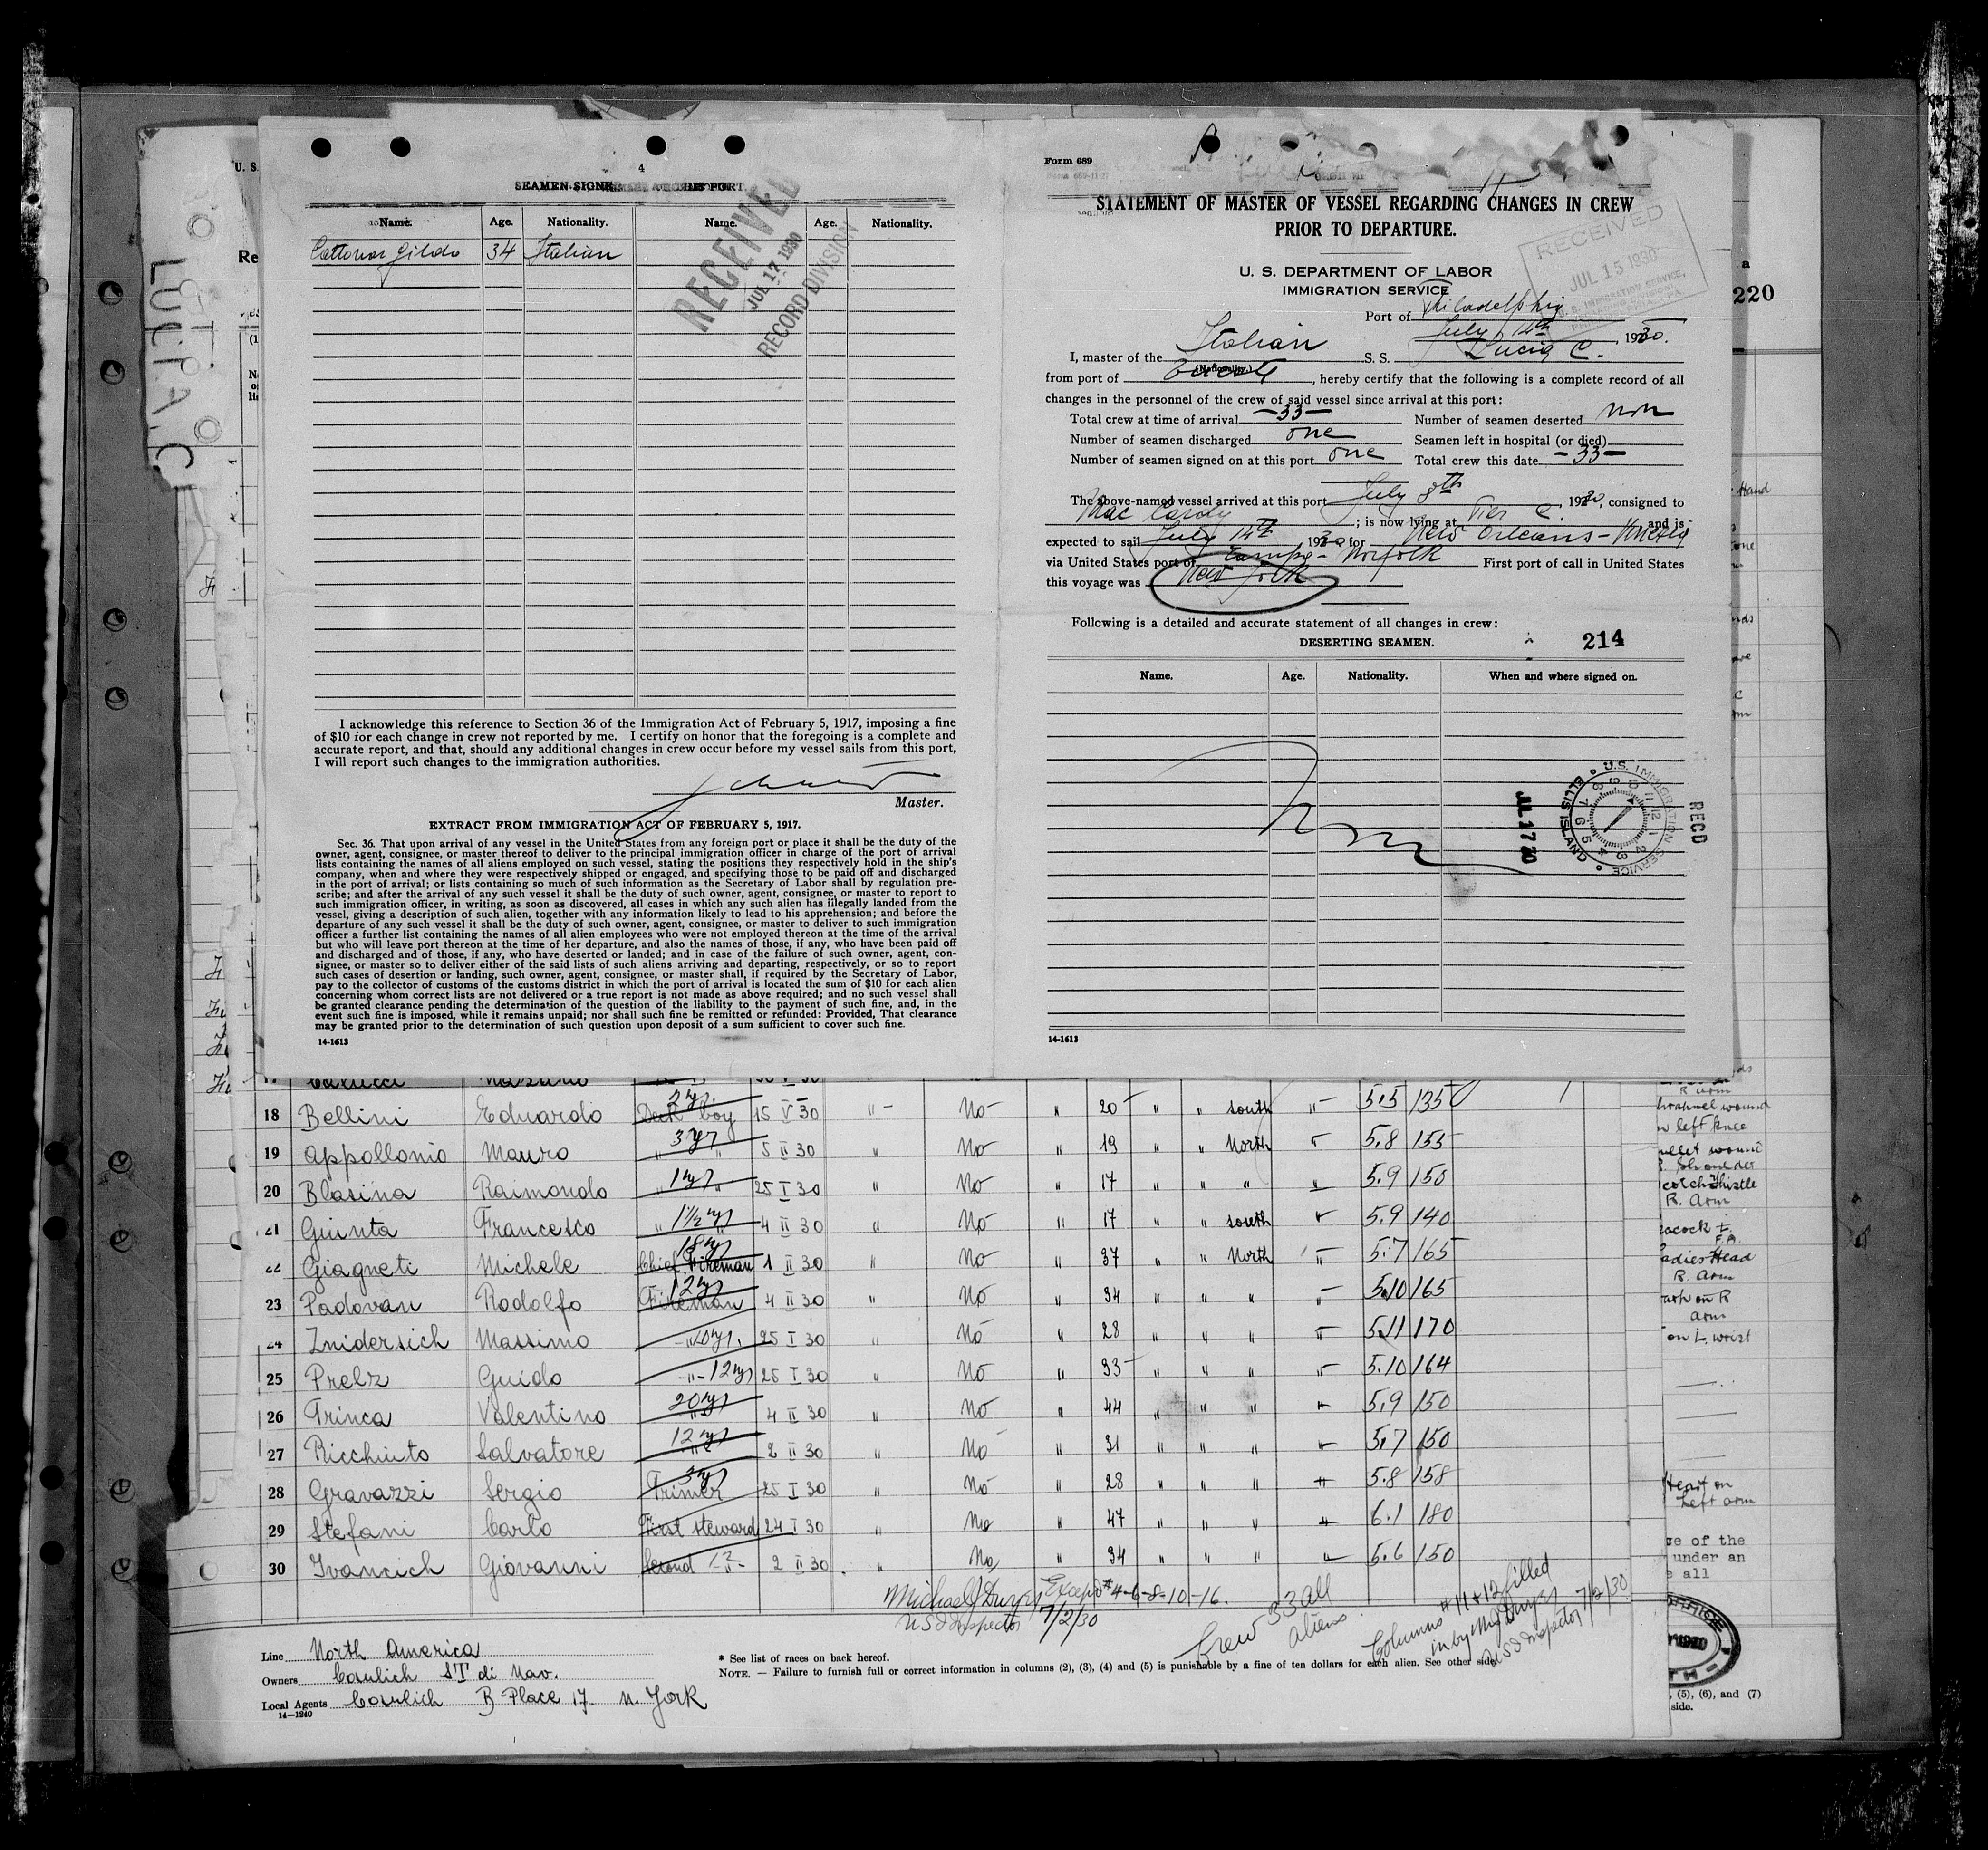 4
SEAMEN SIGNE
Name. Age. Nationality. Name. Age. Nationality.
Gildo 34 Italian
RECEIVED
JUL 17 1930
RECORD DIVISION
I acknowledge this reference to Section 36 of the Immigration Act of February 5, 1917, imposing a fine
of $10 for each change in crew not reported by me. I certify on honor that the foregoing is a complete and
accurate report, and that, should any additional changes in crew occur before my vessel sails from this port,
I will report such changes to the immigration authorities.
Master.
EXTRACT FROM IMMIGRATION ACT OF FEBRUARY 5, 1917.
Sec. 36. That upon arrival of any vessel in the United States from any foreign port or place it shall be the duty of the
owner, agent, consignee, or master thereof to deliver to the principal immigration officer in charge of the port of arrival
lists containing the names of all aliens employed on such vessel, stating the positions they respectively hold in the ship's
company, when and where they were respectively shipped or engaged, and specifying those to be paid off and discharged
in the port of arrival; or lists containing so much of such information as the Secretary of Labor shall by regulation pre-
scribe; and after the arrival of any such vessel it shall be the duty of such owner, agent, consignee, or master to report to
such immigration officer, in writing, as soon as discovered, all cases in which any such alien has illegally landed from the
vessel, giving a description of such alien, together with any information likely to lead to his apprehension; and before the
departure of any such vessel it shall be the duty of such owner, agent, consignee, or master to deliver to such immigration
officer a further list containing the names of all alien employees who were not employed thereon at the time of the arrival
but who will leave port thereon at the time of her departure, and also the names of those, if any, who have been paid off
and discharged and of those, if any, who have deserted or landed; and in case of the failure of such owner, agent, con-
signee, or master so to deliver either of the said lists of such aliens arriving and departing, respectively, or so to report
such cases of desertion or landing, such owner, agent, consignee, or master shall, if required by the Secretary of Labor,
pay to the collector of customs of the customs district in which the port of arrival is located the sum of $10 for each alien
concerning whom correct lists are not delivered or a true report is not made as above required; and no such vessel shall
be granted clearance pending the determination of the question of the liability to the payment of such fine, and, in the
event such fine is imposed, while it remains unpaid; nor shall such fine be remitted or refunded: Provided, That clearance
may be granted prior to the determination of such question upon deposit of a sum sufficient to cover such fine.
14-1613
Form 689
STATEMENT OF MASTER OF VESSEL REGARDING CHANGES IN CREW
PRIOR TO DEPARTURE.
U. S. DEPARTMENT OF LABOR
IMMIGRATION SERVICE
RECEIVED
JUL 15 1930
U. S. IMMIGRATION SERVICE,
Port of Philadelphia
July 14th, 1930.
I, master of the Italian S. S. Lucia C.
(Nationality.)
from port of , hereby certify that the following is a complete record of all
changes in the personnel of the crew of said vessel since arrival at this port:
Total crew at time of arrival -33- Number of seamen deserted non
Number of seamen discharged one Seamen left in hospital (or died)
Number of seamen signed on at this port one Total crew this date -33-
The above-named vessel arrived at this port July 8th, 1930, consigned to
Mac Cardy ; is now lying at Pier C. and is
expected to sail July 14th 1930 for New Orleans -
via United States port of Tampa - Norfolk First port of call in United States
this voyage was New York
Following is a detailed and accurate statement of all changes in crew:
DESERTING SEAMEN. 214
Name. Age. Nationality. When and where signed on.
U.S. IMMIGRATION SERVICE
ELLIS ISLAND
RECD
JUL 17 30
14-1613
U. S.
Re
LUCIA C
a
220
Hand
18 Bellini Eduardo Deck boy 2 y 15 V 30 " No " 20 " " South " 5.5 135
19 Appollonio Mauro " 3 y " 5 II 30 " No " 19 " " North " 5.8 153
20 Blasina Raimondo " 1 y " 25 I 30 " No " 17 " " " " 5.9 150
21 Giunta Francesco " 1½ y 4 II 30 " No " 17 " " South " 5.9 140
22 Giagneti Michele Chief Fireman 18 y 1 II 30 " No " 37 " " North " 5.7 165
23 Padovan Rodolfo Fireman 12 y 4 II 30 " No " 34 " " " " 5.10 165
24 Znidersich Massimo " 10 y. 25 I 30 " No " 28 " " " " 5.11 170
25 Prelz Guido -"- 12 y 25 I 30 " No " 33 " " " " 5.10 164
26 Trinca Valentino 20 y " 4 II 30 " No " 44 " " " " 5.9 150
27 Ricchiuto Salvatore 12 y " 2 II 30 " No " 31 " " " " 5.7 150
28 Gravazzi Sergio Trimer 3 y 25 I 30 " No " 28 " " " " 5.8 158
29 Stefani Carlo First steward 24 I 30 " No " 47 " " " " 6.1 180
30 Ivancich Giovanni Second -"- 2 II 30 " No " 34 " " " " 5.6 150
left knee
R. Arm
Head
R. Arm
on R
Arm
on L. wrist
Heart on
Left arm
ge of the
under an
e all
Michael Dwyer Except #4-6-8-10-16.
US I Inspector 7/2/30
Crew 33 all
aliens
Columns #11 + 12 filled
in by M J Dwyer
US I Inspector 7/2/30
Line North America
Owners Cosulich ST di Nav.
Local Agents Cosulich B Place 17 N. York
14-1240
* See list of races on back hereof.
NOTE. — Failure to furnish full or correct information in columns (2), (3), (4) and (5) is punishable by a fine of ten dollars for each alien. See other side.
, (5), (6), and (7)
side.